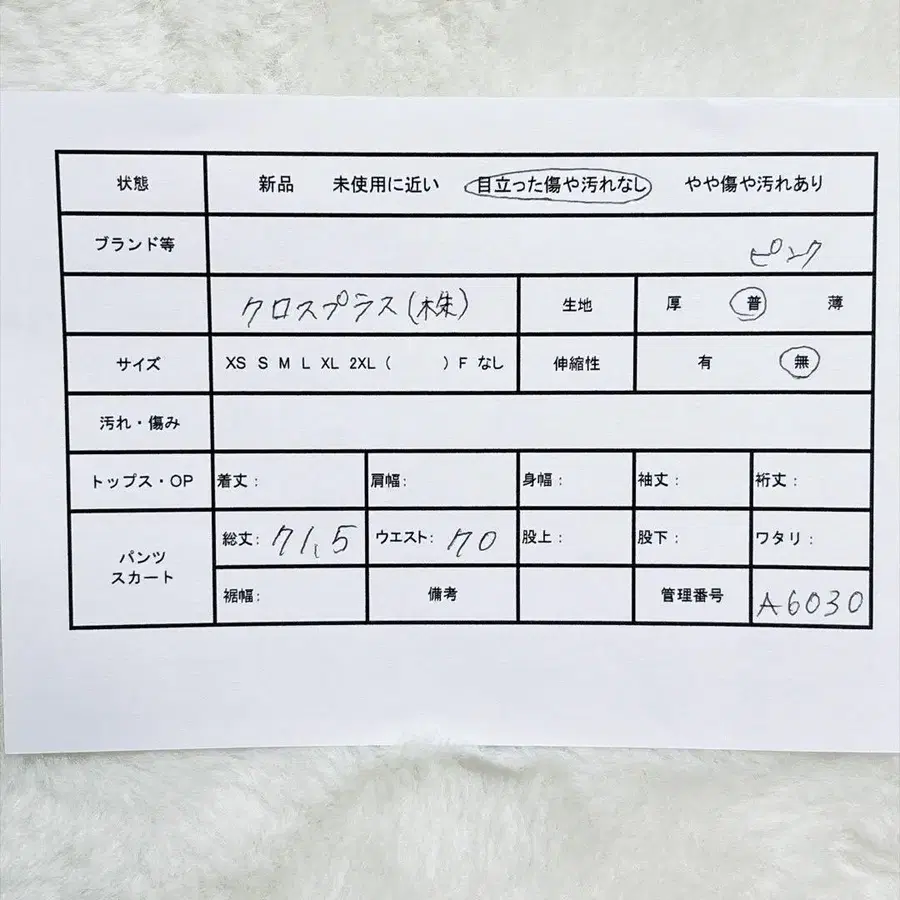 状態 新品 未使用に近い 目立った傷や汚れなし やや傷や汚れあり
ブランド等 ピンク
クロスプラス(株) 生地 厚 普 薄
サイズ XS S M L XL 2XL ( ) F なし 伸縮性 有 無
汚れ・傷み
トップス・OP 着丈: 肩幅: 身幅: 袖丈: 裄丈:
パンツ スカート 総丈: 71.5 ウエスト: 70 股上: 股下: ワタリ:
裾幅: 備考 管理番号 A6030